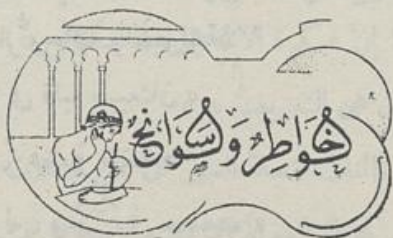 خَوَاطِر وَسَوَانِح